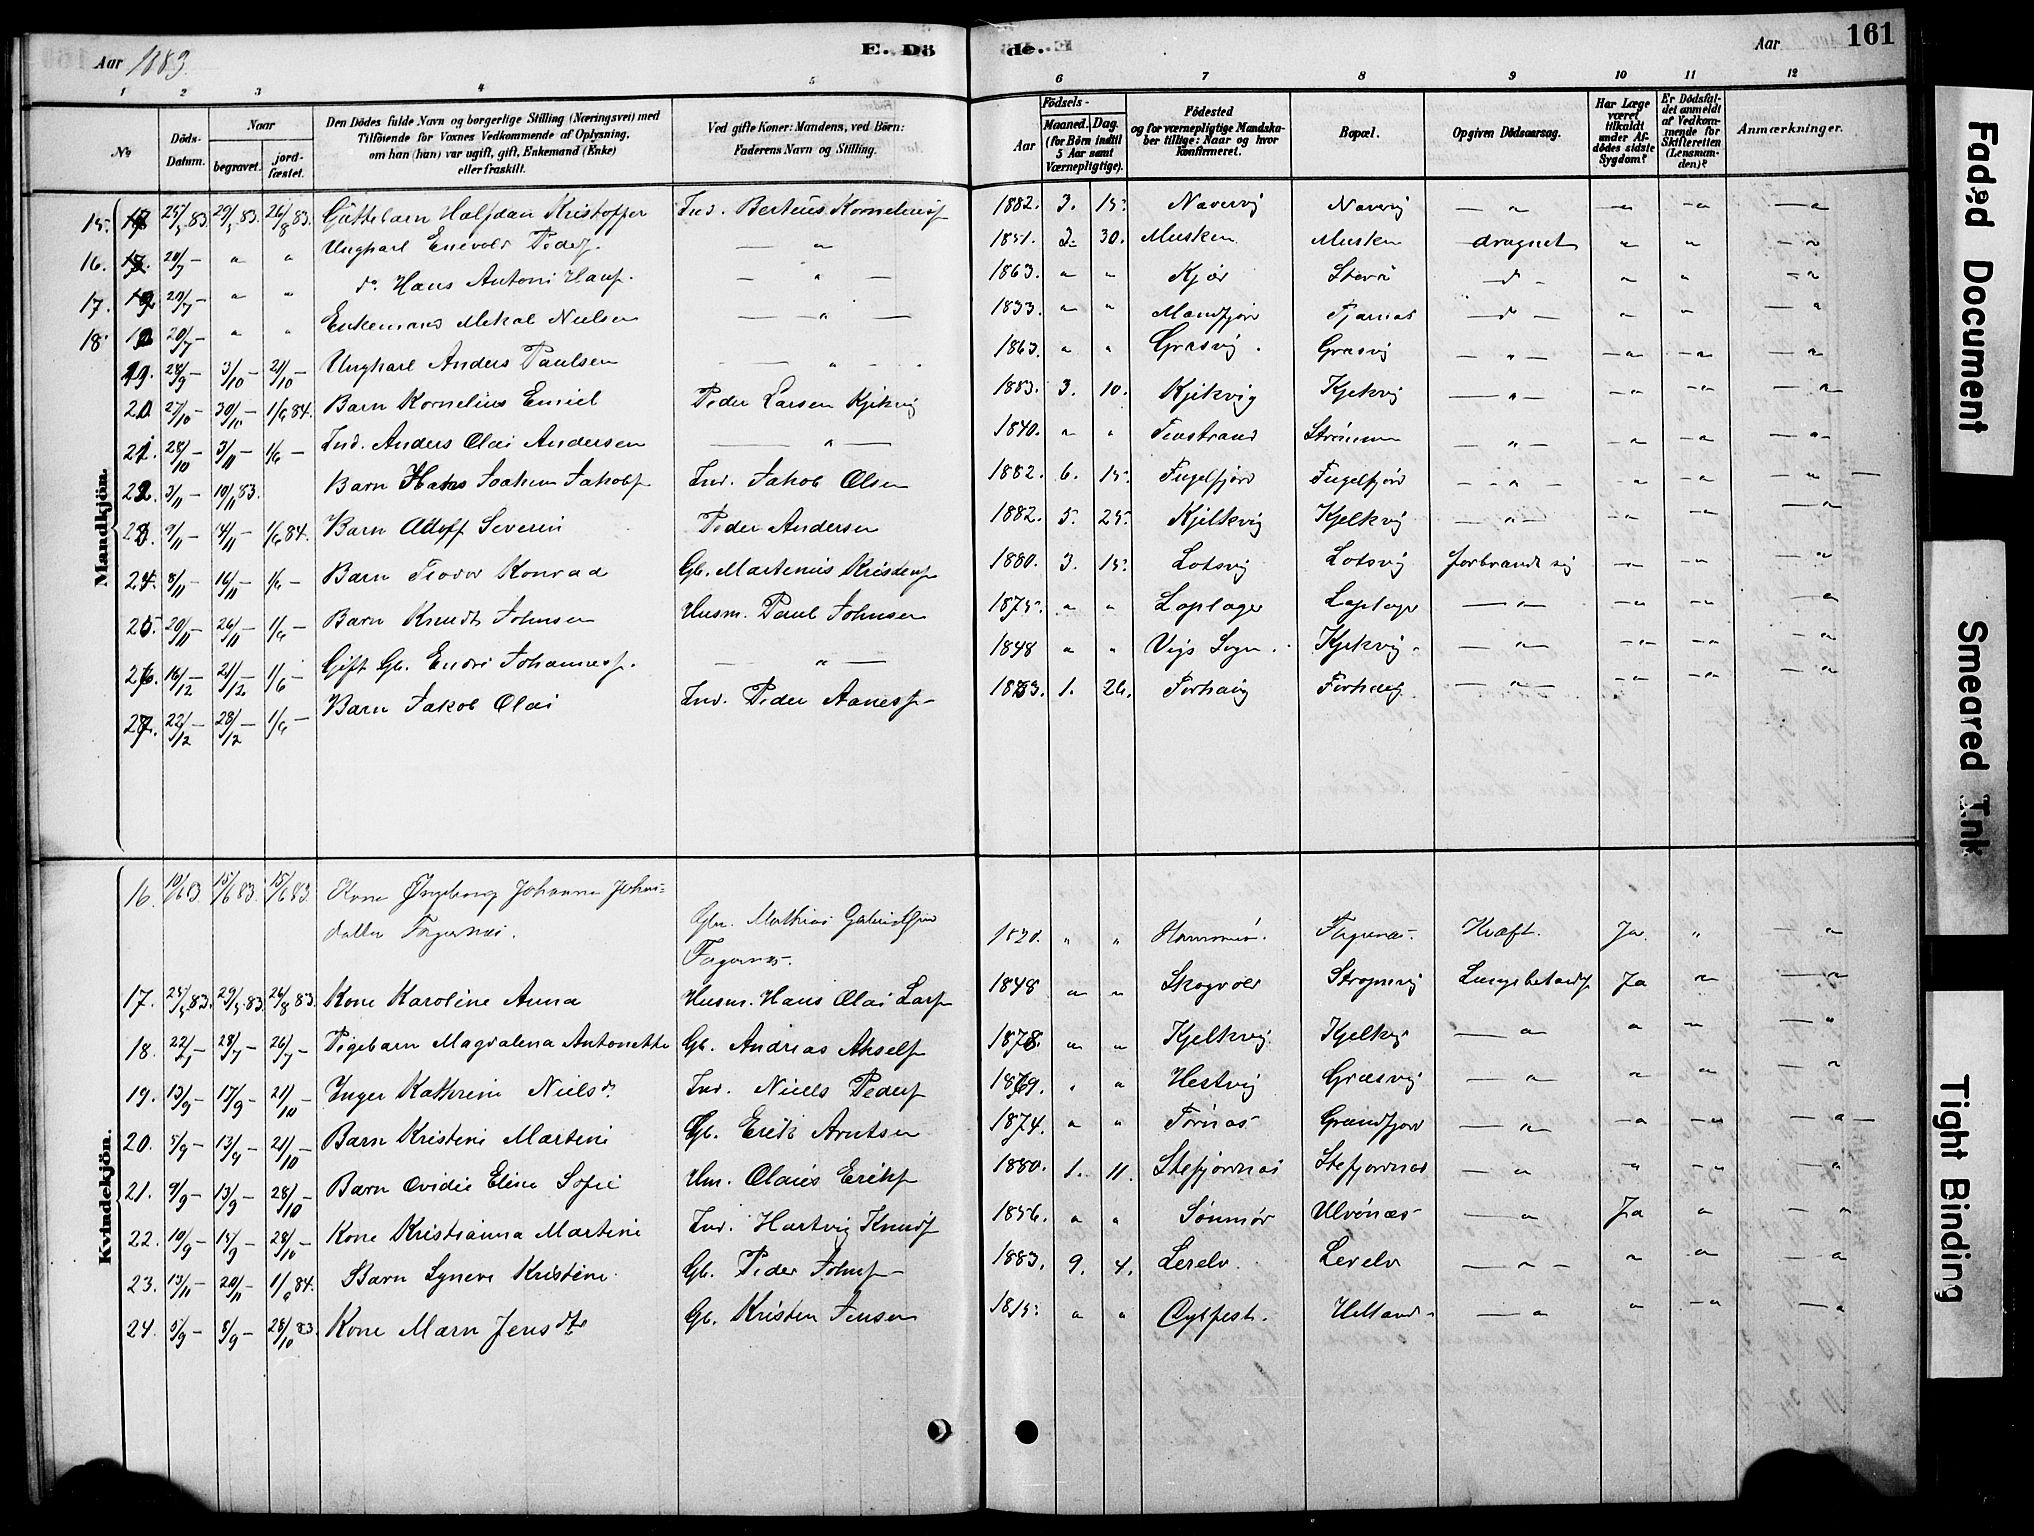 Aar 1883.
E. Dö
de.
Aar
161
1 2 3 4 5 6 7 8 9 10 11 12
No
Döds-Datum.
Naar
begravet.
jord-fæstet.
Den Dödes fulde Navn og borgerlige Stilling (Næringsvei) med
Tilföiende for Voxnes Vedkommende af Oplysning,
om han (hun) var ugift, gift, Enkemand (Enke)
eller fraskilt.
Ved gifte Koner: Mandens, ved Börn:
Faderens Navn og Stilling.
Födsels-
Aar
Maaned. Dag.
(for Börn indtil
5 Aar samt
Værnepligtige).
Födested
og for værnepligtige Mandska-
ber tillige: Naar og hvor
konfirmeret.
Bopæl.
Opgiven Dödsaarsag.
Har Læge
været
tilkaldt
under Af-
dödes sidste
Sygdom?
Er Dödsfal-
det anmeldt
af Vedkom-
mende for
Skifteretten
(Lensman-
den)?
Anmærkninger.
Mandkjön.
15. 25/5 83. 29/5 83. 26/8 83. Guttebarn Halfdan Kristoffer Ind. Berteus Korneliuss 1882. 3. 15. Navervig
16. 20/7 — " " Ungkarl Enevold Peders. — " 1851. 30. Musken Musken druknet " "
17. 20/7 — " " do Hans Antoni Hans. — " — 1863. " " Kjær — d —
18. 20/7 — " " Enkemand Mikal Nielsen — " — 1833. " " Mandfjord Tjærnæs — d —
19. 28/9 — 3/10 — 21/10 — Ungkarl Anders Paulsen — " — 1863. " " Græsvig. Græsvig — " —
20. 27/10 — 30/10 — 1/6 84. Barn Kornelius Emiel Peder Larsen Kjikvig 1883. 3. 10. Kjikvig Kjekvig — " —
21. 28/10 — 3/11 — 1/6 — Ind. Anders Olai Andersen — " — 1840. " " Strømmen — " —
22. 3/11 — 10/11 83. Barn Hans Joakim Jakobs Ind. Jakob Olsen 1882. 6. 15. Fuglfjord Fuglfjord — " —
23. 9/11 — 14/11 — 1/6 84. Barn Adolf Severin Peder Andersen 1882. 5. 25. Kjelkvig Kjelkvig — " —
24. 8/11 — 16/11 — 1/6 — Barn Teodor Konrad Gb. Martenius Kristens 1880. 3. 15. Lotsvig Lotsvig forbrændt sig
25. 20/11 — 26/11 — 1/6 — Barn Knudt Johnsen Husm. Paul Johnsen 1875. " " Laplager Laplager — " —
26. 16/12 — 21/12 — 1/6 — Gift Gb. Endre Johanness. — " — 1848 " " Vigs Sogn. Kjekvig. — " —
27. 22/12 — 28/12 — 1/6 — Barn Jakob Olai Ind. Peder Aaness 1883. 1. 26. — " —
Kvindekjön.
16. 10/6 83 15/6 83. 15/6 83. Kone Ingeborg Johanna Johns-
datter Fagernæs. Gbr. Mathias Gabrielsen
Fagernæs. 1820. " " Hammerø. Fagernæs. Kræft. Ja. " "
17. 25/5 83. 29/5 83. 26/8 83. Kone Karoline Anna Husm. Hans Olai Lars 1848 " " Skogvoll Lungebetænd. Ja "
18. 22/7 — 28/7 — 26/7 — Pigebarn Magdalena Antonette Gb. Andrias Aksels 1878. " " Kjelkvig Kjelkvig — "
19. 13/9 — 17/9 — 21/10 — Inger Kathrine Nielsd. Ind. Niels Peders 1869. " " Hestvig Græsvig — "
20. 5/9 — 13/9 — 21/10 — Barn Kristine Martine Gb. Erik Arntsen 1874. " " Tørnæs Grundfjord — "
21. 9/9 — 13/9 — 28/10 — Barn Ovidie Elise Sofie Hm. Olaus Eriks 1880. 1. 11. Stefjordnæs Stefjordnæs — "
22. 10/9 — 15/9 — 28/10 — Kone Kristianna Martine Ind. Hartvig Knuds 1856. " " Sønmør Ulvönæs — " Ja "
23. 13/11 — 20/11 — 1/6 84. Barn Syneve Kristine Gb. Peder Johns 1883. 9. 4. Lerelv. Lerelv — "
24. 5/9 — 8/9 — 28/10 83. Kone Marn Jensdtr Gb. Kristen Jensen 1815. " " Helland — "
Faded Document
Smeared Ink
Tight Binding